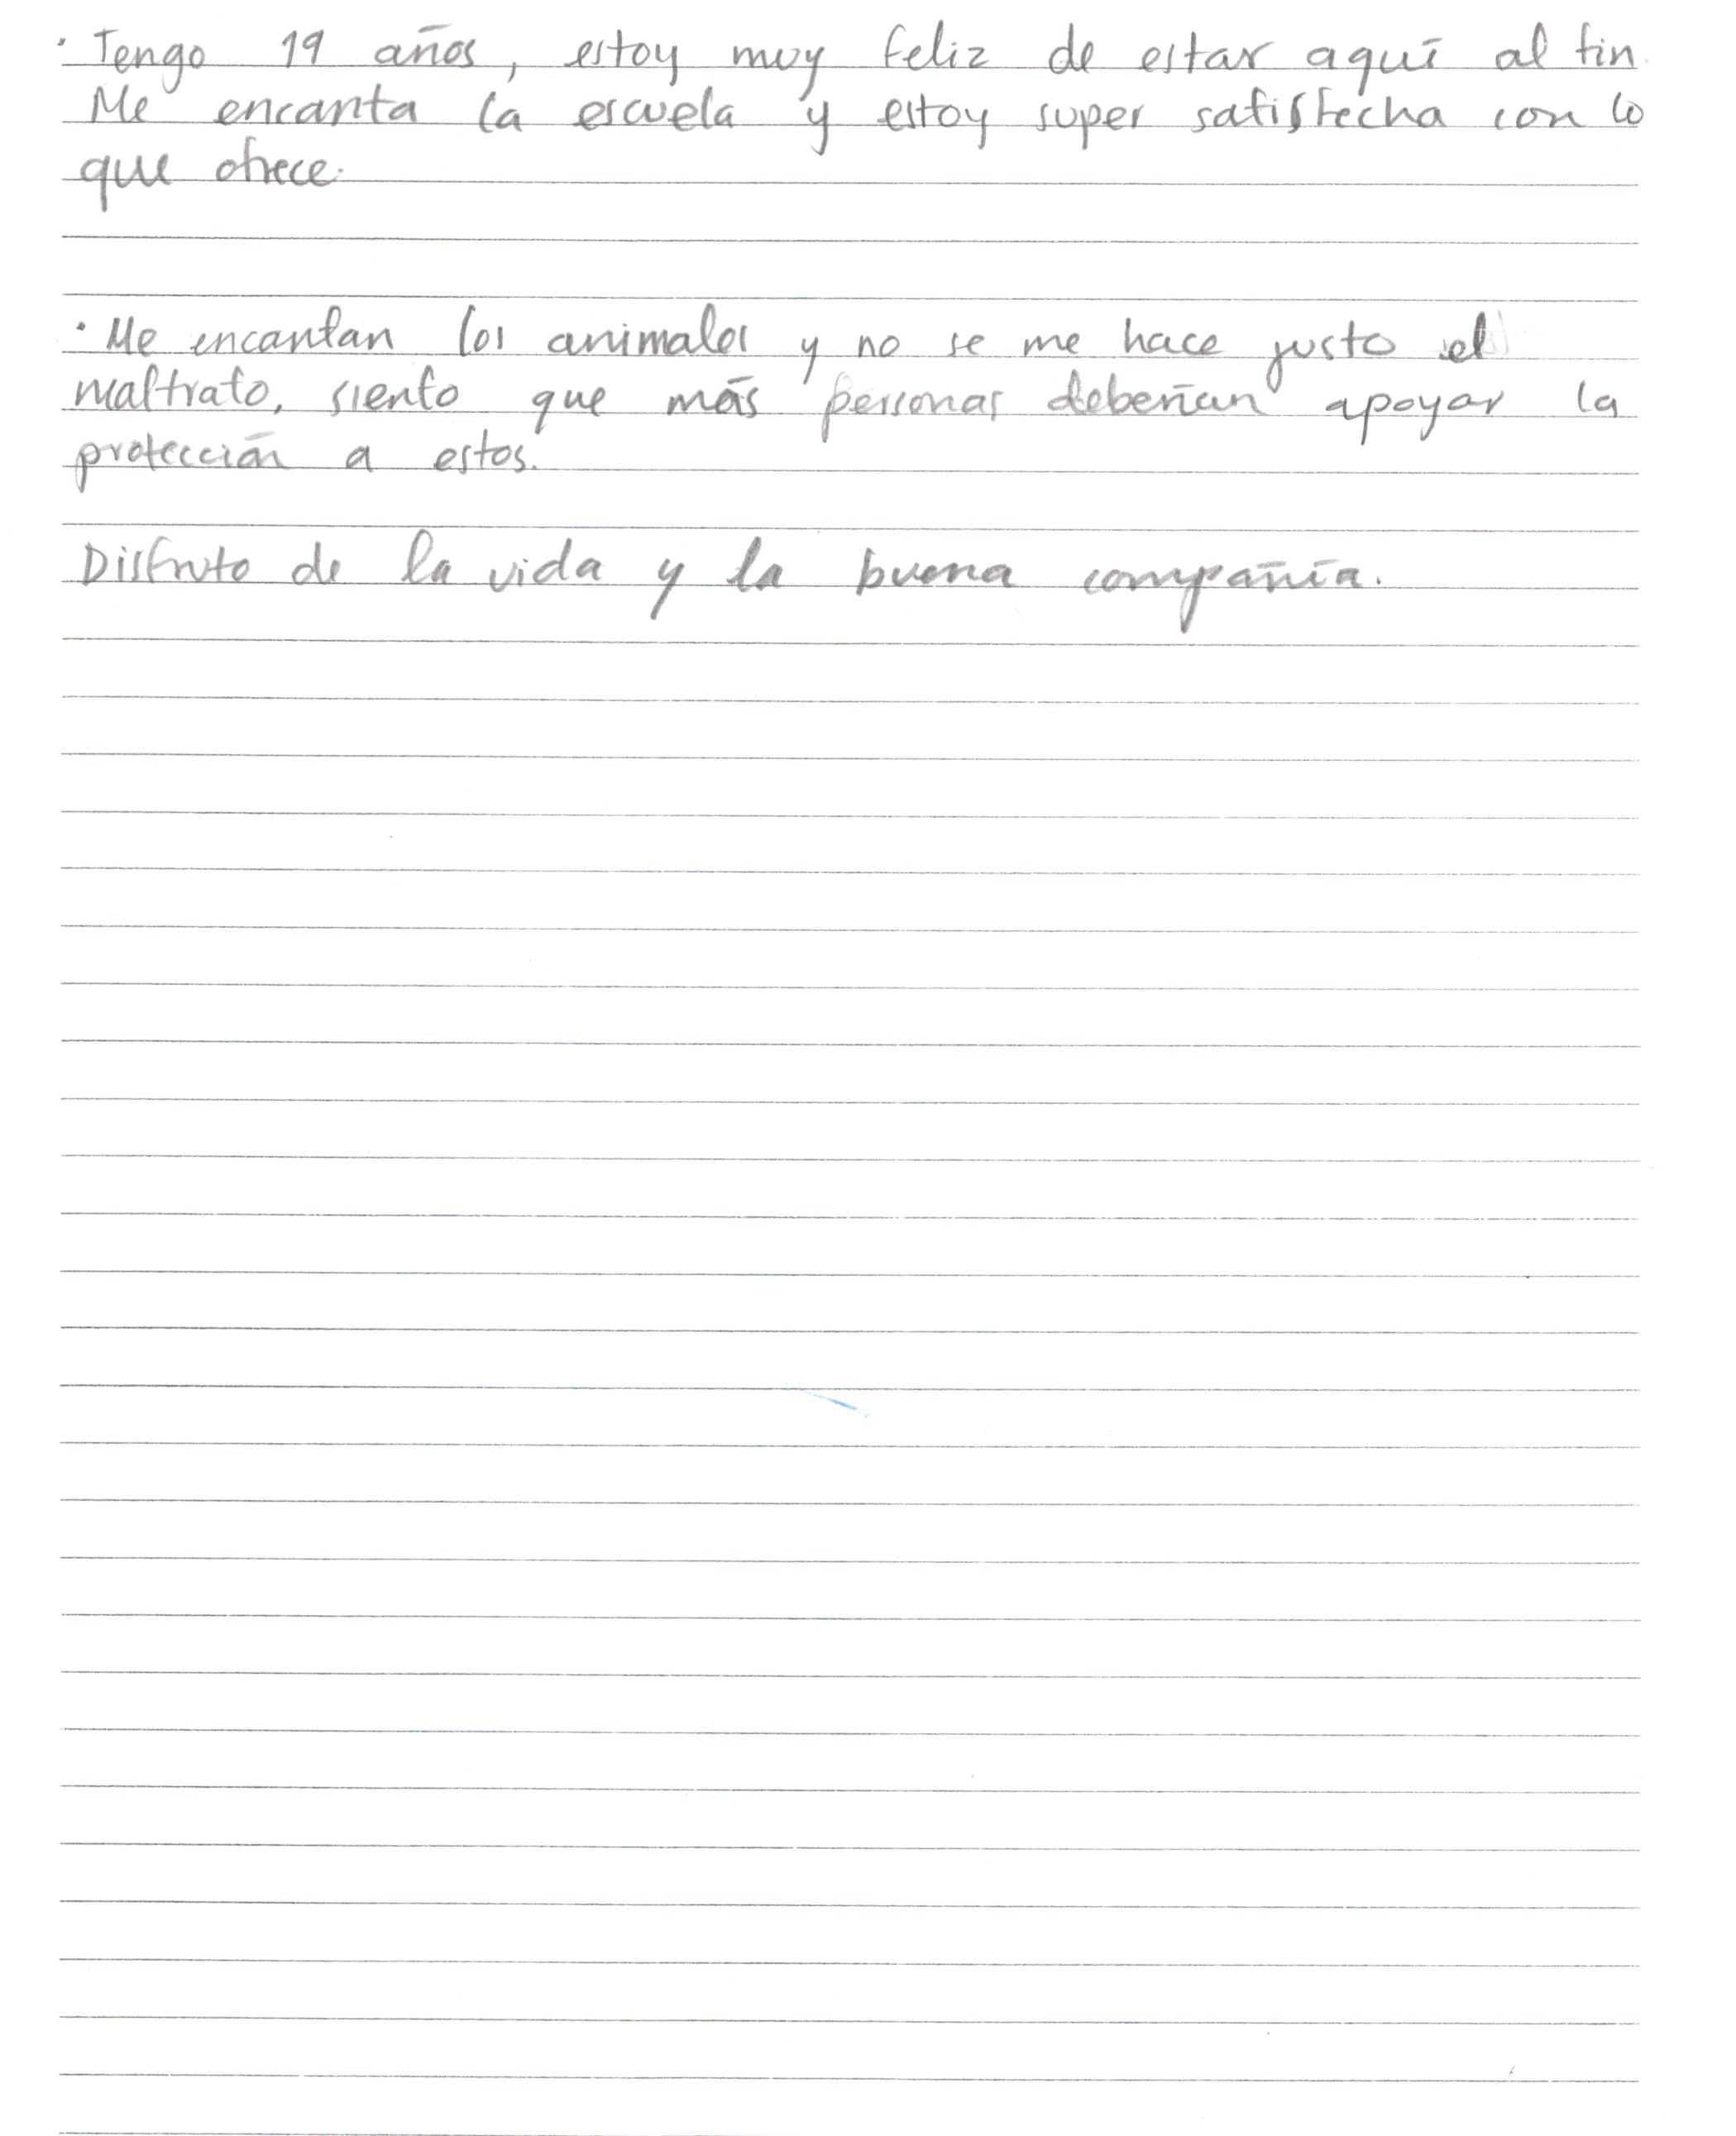 · Tengo 19 años, estoy muy feliz de estar aquí al fin.
Me encanta la escuela y estoy super satisfecha con lo
que ofrece.
· Me encantan los animales y no se me hace justo el
maltrato, siento que más personas deberían apoyar la
protección a estos.
Disfruto de la vida y la buena compañía.